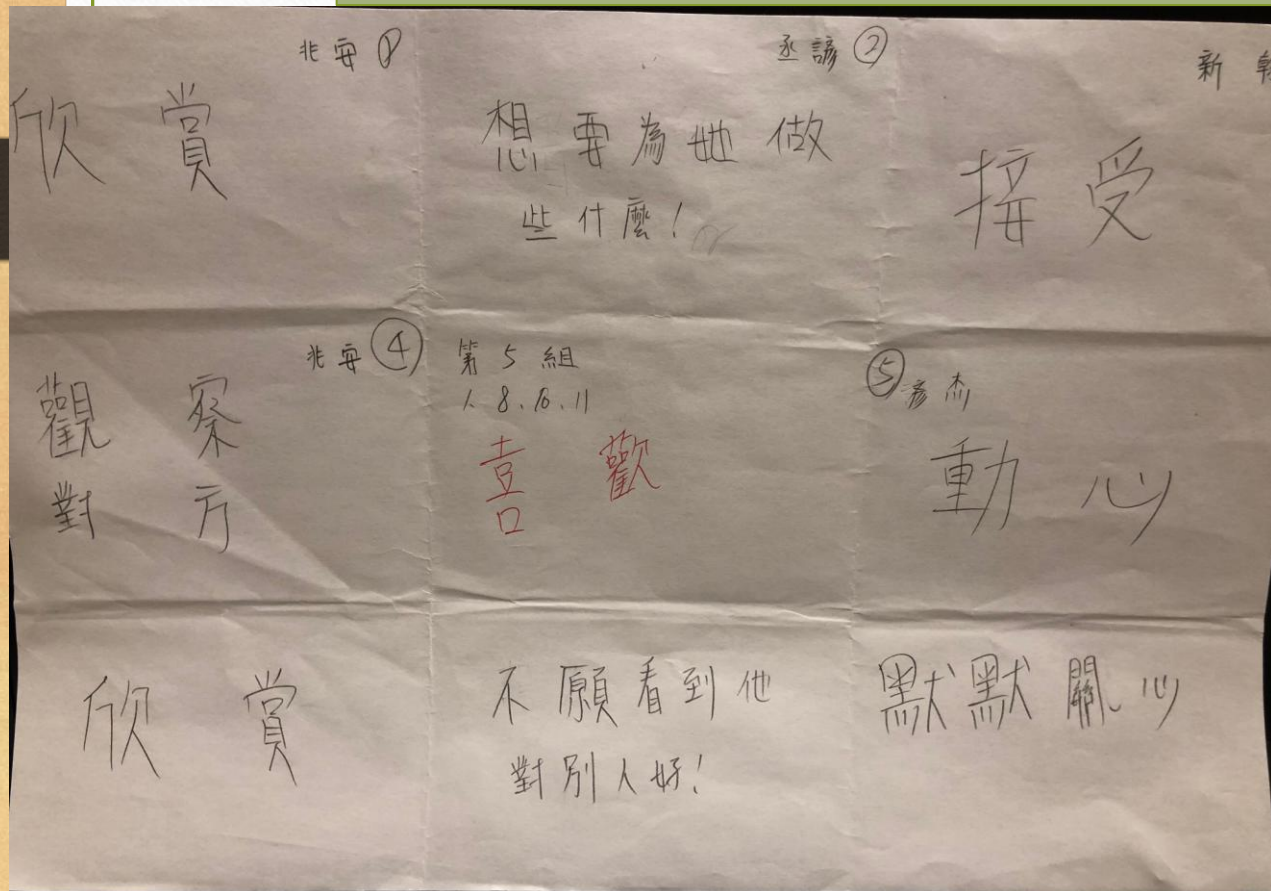 兆安①
欣賞
丞諺②
想要為她做
些什麼！
新
接受
兆安④
觀察
對方
第5組
1.8.10.11
喜歡
⑤彥杰
動心
欣賞
不願看到他
對別人好！
默默關心